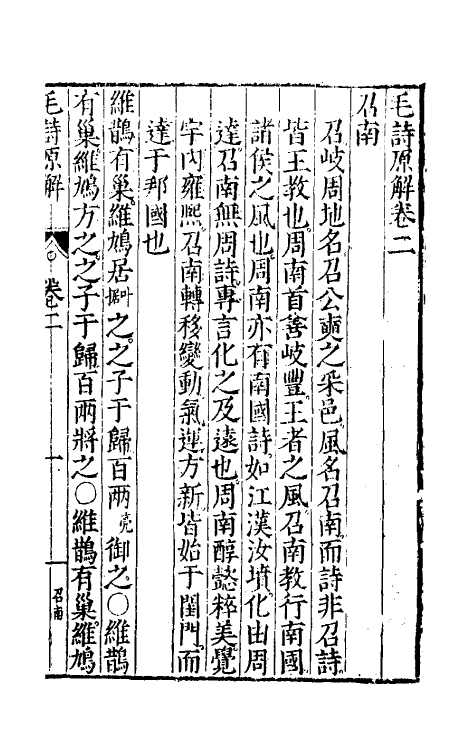 毛詩原解卷二
召南
召岐周地名召公奭之采邑風名召南而詩非召詩
皆王教也周南首善岐豐王者之風召南教行南國
諸侯之風也周南亦有南國詩如江漢汝墳化由周
達召南無周詩專言化之及遠也周南醇懿粹美覺
宇內雍熙召南轉移變動氣運方新皆始于閨門而
達于邦國也
維鵲有巢維鳩居叶據之之子于歸百兩亮御之○維鵲
有巢維鳩方之之子于歸百兩將之○維鵲有巢維鳩
毛詩原解
卷二
一
召南